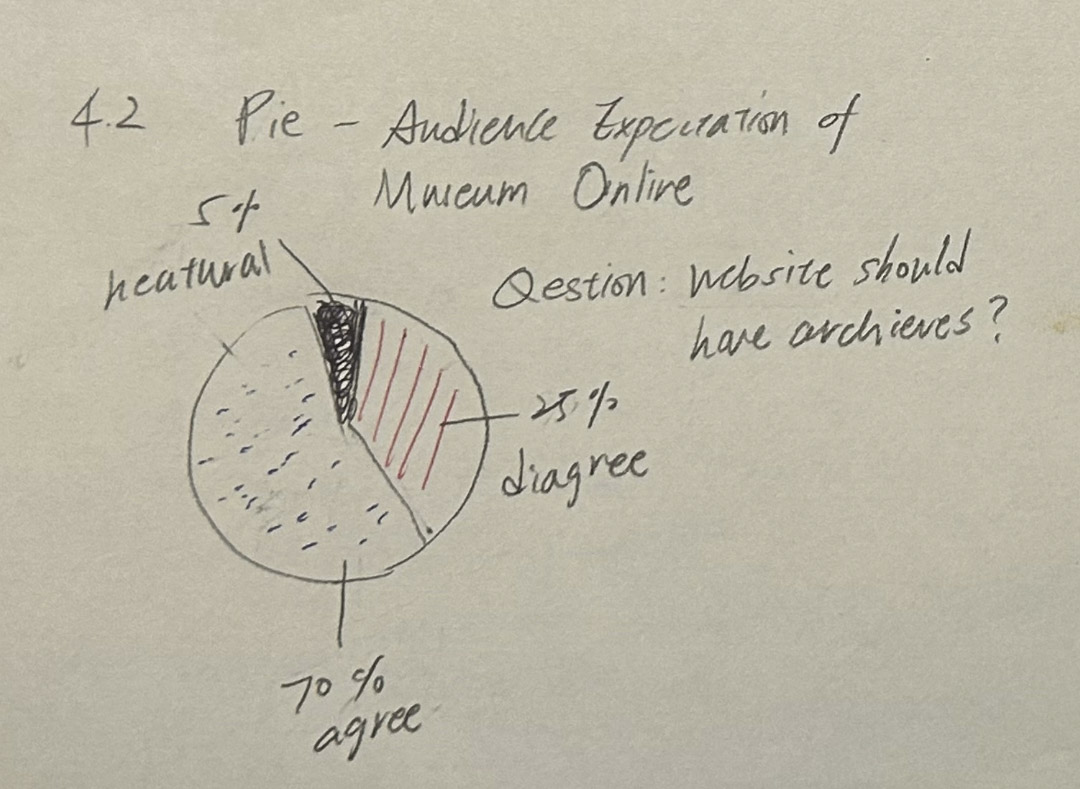 4.2 Pie - Audience Expectation of
Museum Online
5%
neatural
Qestion: Website should
have archieves?
25%
diagree
70%
agree